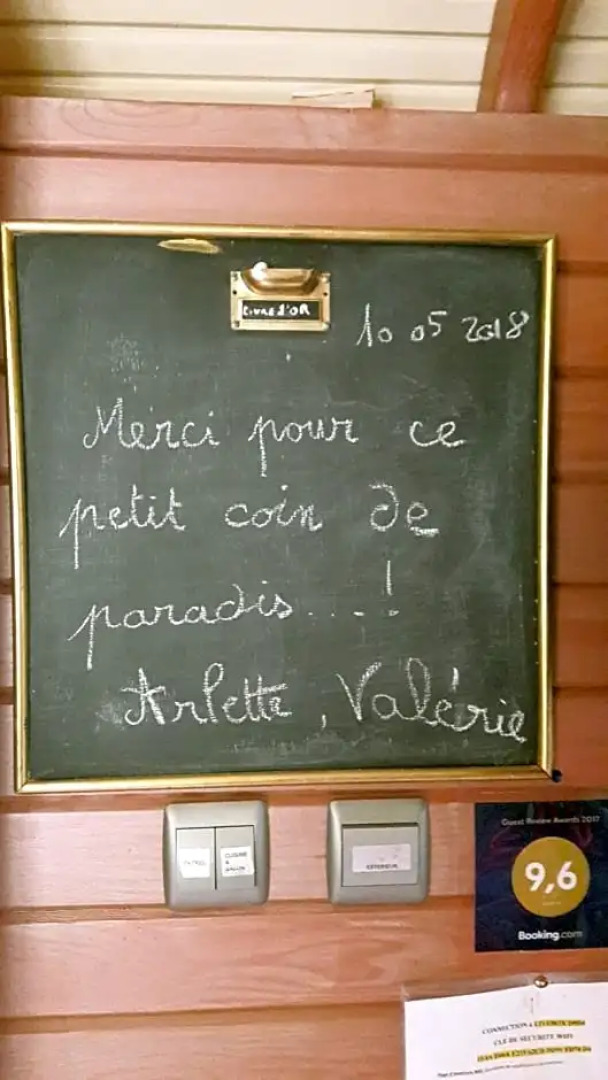 Livre d'OR
10 05 2018
Merci pour ce
petit coin de
paradis...!
Arlette, Valérie
CUISINE
&
SALON
EXTERIEUR
Guest Review Awards 2017
9,6
Booking.com
CONNECTION à LIVEBOX
CLE DE SECURITE WIFI